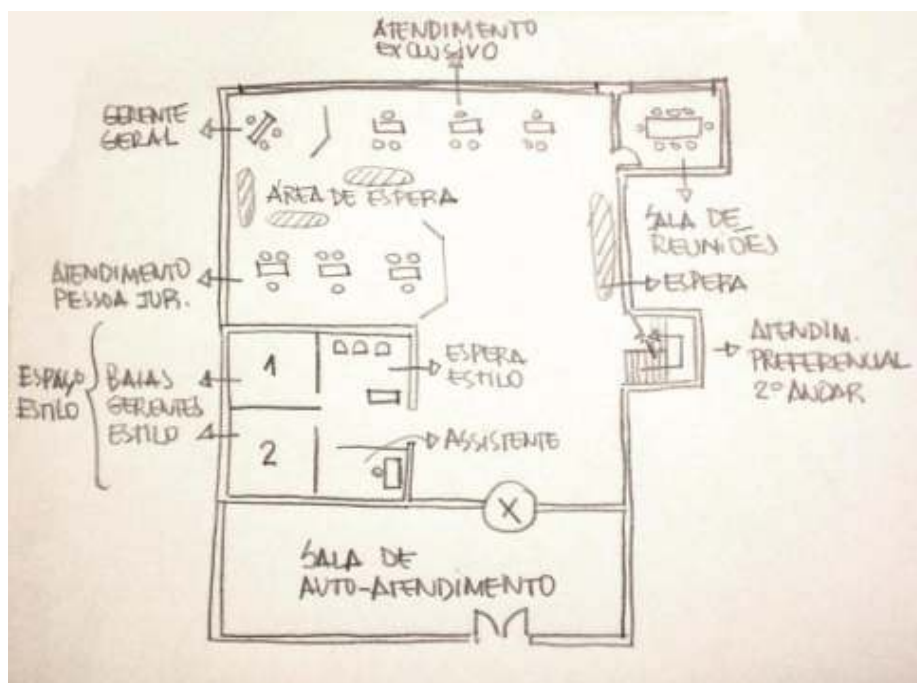 ATENDIMENTO
EXCLUSIVO
GERENTE
GERAL
ÁREA DE ESPERA
SALA DE
REUNIÕES
ESPERA
ATENDIMENTO
PESSOA JUR.
ATENDIM.
PREFERENCIAL
2º ANDAR
ESPAÇO
ESTILO
BAIAS
GERENTES
ESTILO
1
2
ESPERA
ESTILO
ASSISTENTE
X
SALA DE
AUTO-ATENDIMENTO